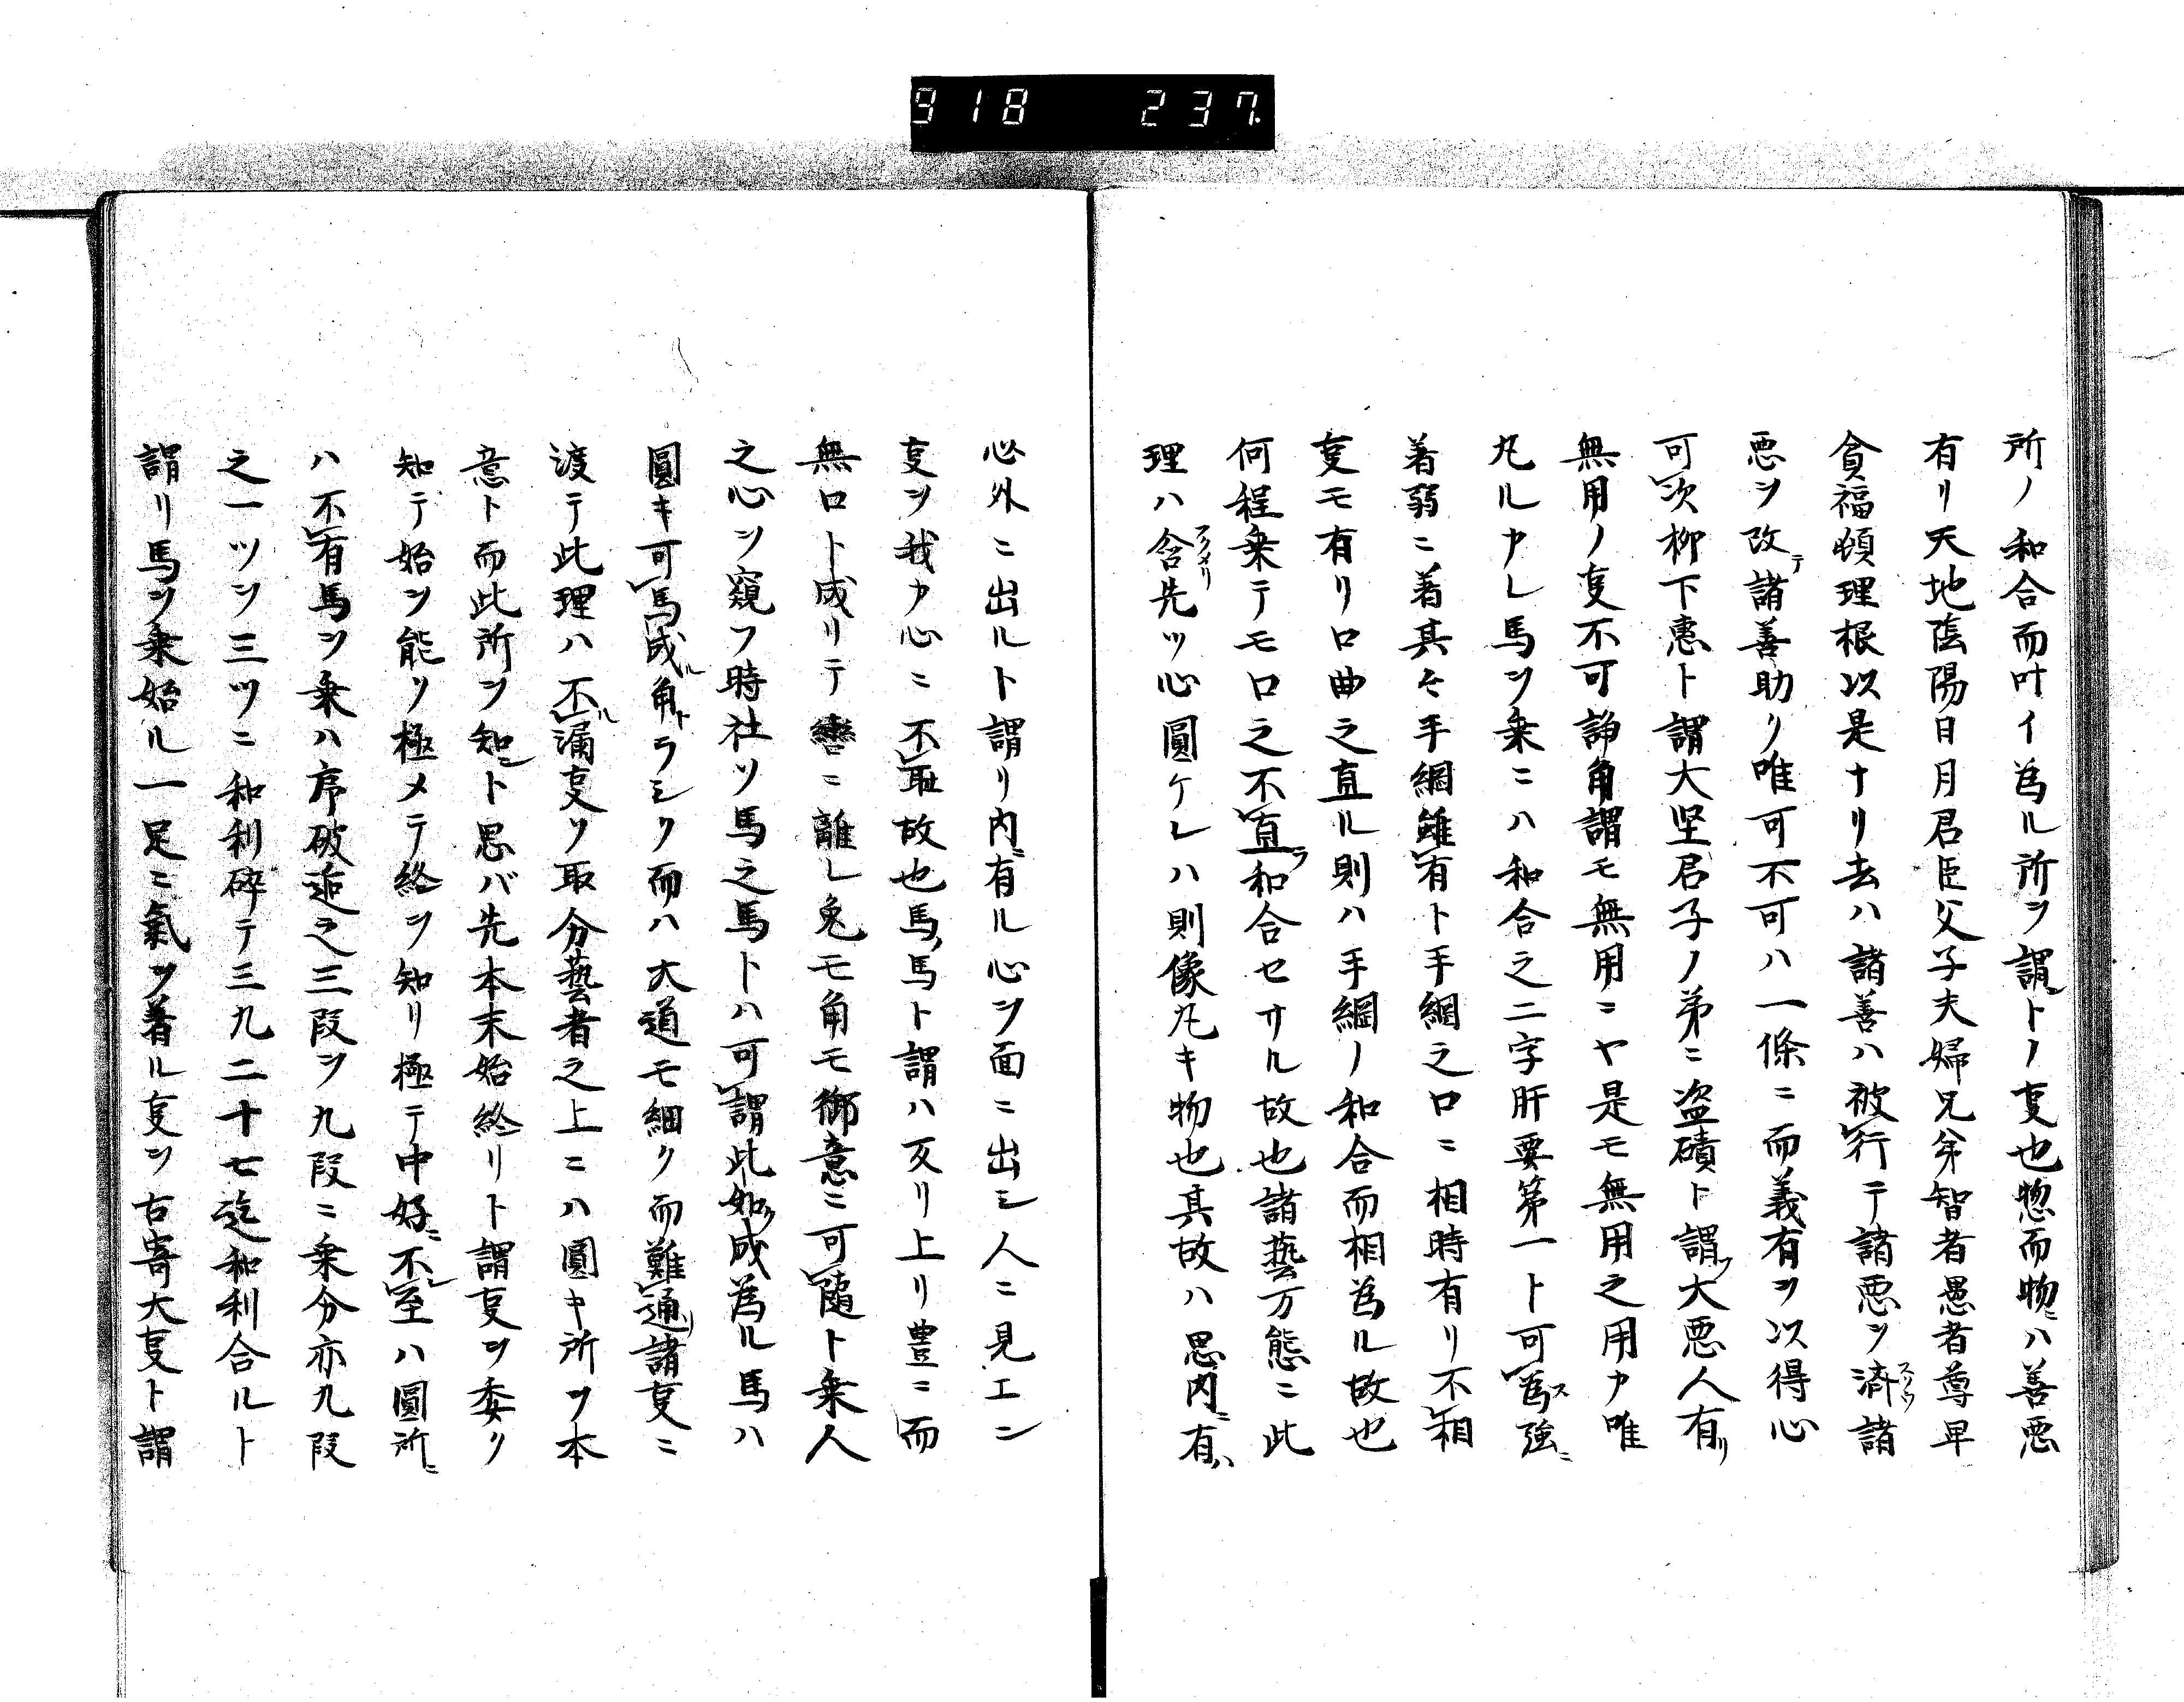 918 237.
所ノ和合而叶イ為ル所ヲ謂トノ㕝也惣而物ニハ善悪
有リ天地陰陽日月君臣父子夫婦兄弟智者愚者尊卑
貪福頓理根以是ナリ去ハ諸善ハ被行テ諸悪ヲ済スクウ諸
悪ヲ改テ諸善助リ唯可不可ハ一條ニ而義有ヲ以得心
可次柳下恵ト謂大坚君子ノ弟ニ盗磧ト謂フ大悪人有リ
無用ノ㕝不可諍角謂モ無用ニヤ是モ無用之用カ唯
丸ルカレ馬ヲ乗ニハ和合之二字肝要第一ト可為ス強ニ
着弱ニ着其々手綱雖有ト手綱之口ニ相時有リ不相
㕝モ有リ口曲之直ル則ハ手綱ノ和合而相為ル故也
何程乗テモ口之不直ラ和合セサル故也諸藝万態ニ此
理ハ含フクメリ先ツ心圓ケレハ則像丸キ物也其故ハ思内ニ有ハ
必外ニ出ルト謂リ内ニ有ル心ヲ面ニ出シ人ニ見エン
㕝ヲ我カ心ニ不耻故也馬馬ト謂ハ反リ上リ豊ニ而
無口ト成リテ轡ニ離レ兔モ角モ御意ニ可随ト乗人
之心ヲ窺フ時社ソ馬之馬トハ可謂此如ク成為ル馬ハ
圓キ可馬成ル角トラシク而ハ大道モ細ク而難通リ諸㕝ニ
渡テ此理ハ不漏ル㕝ヲ取分藝者之上ニハ圓キ所ヲ本
意ト而此所ヲ知ント思バ先本末始終リト謂㕝ヲ委ク
知テ始ヲ能ク極メテ終ヲ知リ極テ中好ニ不至レハ圓所ニ
ハ不有馬ヲ乗ハ序破逅之三段ヲ九段ニ乗分亦九段
之一ツヲ三ツニ和利砕テ三九二十七迄和利合ルト
謂リ馬ヲ乗始ル一足ニ氣ヲ着ル㕝ヲ古寄大㕝ト謂